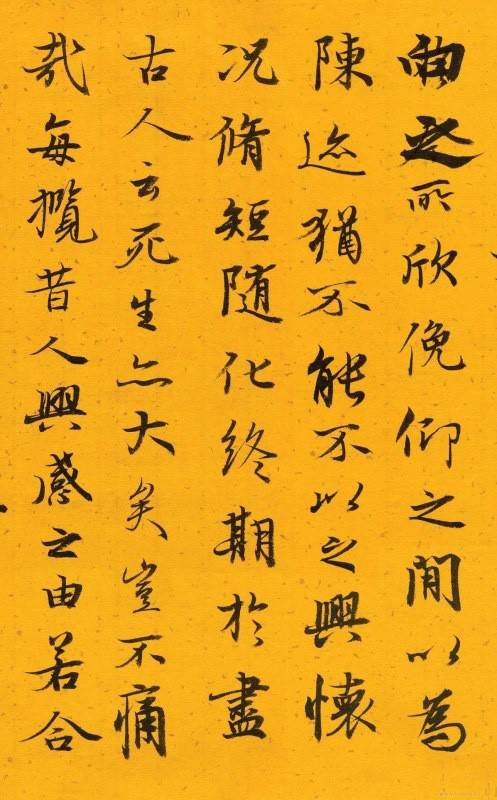 向之所欣俛仰之閒以為
陳迹猶不能不以之興懷
况脩短随化終期於盡
古人云死生亦大矣豈不痛
哉每攬昔人興感之由若合